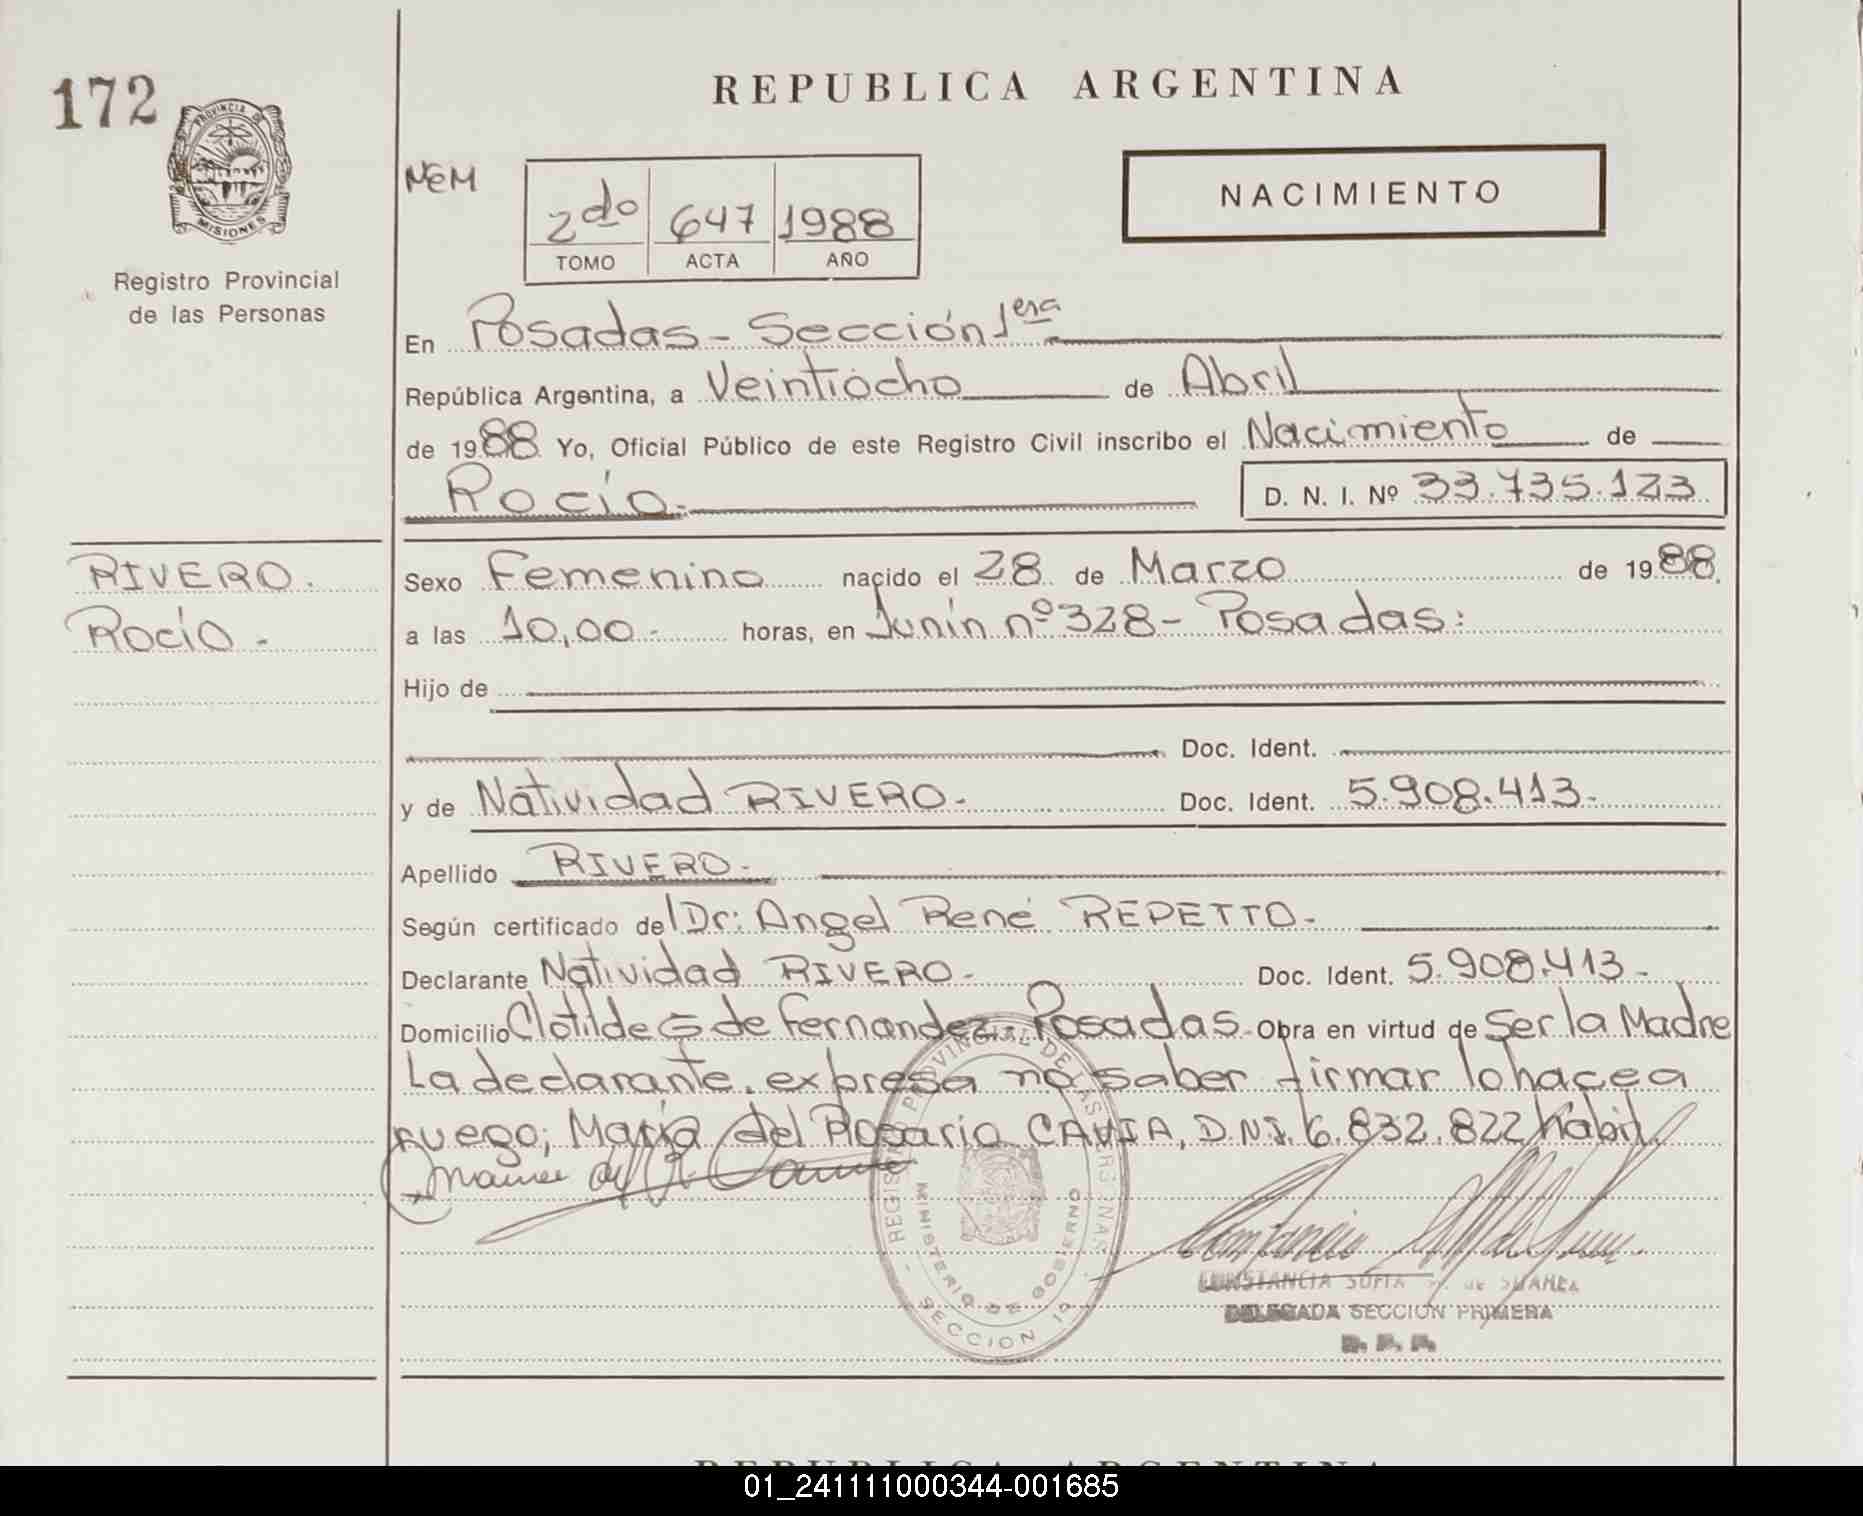 172
PROVINCIA DE
MISIONES
Registro Provincial
de las Personas
REPUBLICA ARGENTINA
NEM
2do 647 1988
TOMO ACTA AÑO
NACIMIENTO
En Posadas - Sección 1era
República Argentina, a Veintiocho de Abril
de 1988 Yo, Oficial Público de este Registro Civil inscribo el Nacimiento de
Rocío.- D. N. I. Nº 33.735.123
RIVERO.
Rocío -
Sexo Femenino nacido el 28 de Marzo de 1988
a las 10,00 - horas, en Junín nº 328 - Posadas:
Hijo de
Doc. Ident.
y de Natividad RIVERO - Doc. Ident. 5.908.413 -
Apellido RIVERO -
Según certificado de Dr: Angel René REPETTO -
Declarante Natividad RIVERO - Doc. Ident. 5.908.413 -
Domicilio Clotilde G de Fernandez Posadas - Obra en virtud de Ser la Madre
La declarante, expresa no saber firmar lo hace a
ruego; María del Rosario CAVIA, D.N.I. 6.832.822 hábil.
REGISTRO PROVINCIAL DE LAS PERSONAS
MINISTERIO DE GOBIERNO
SECCION 1a
CONSTANCIA SOFIA de SUAREZ
DELEGADA SECCION PRIMERA
REPUBLICA ARGENTINA
01_241111000344-001685